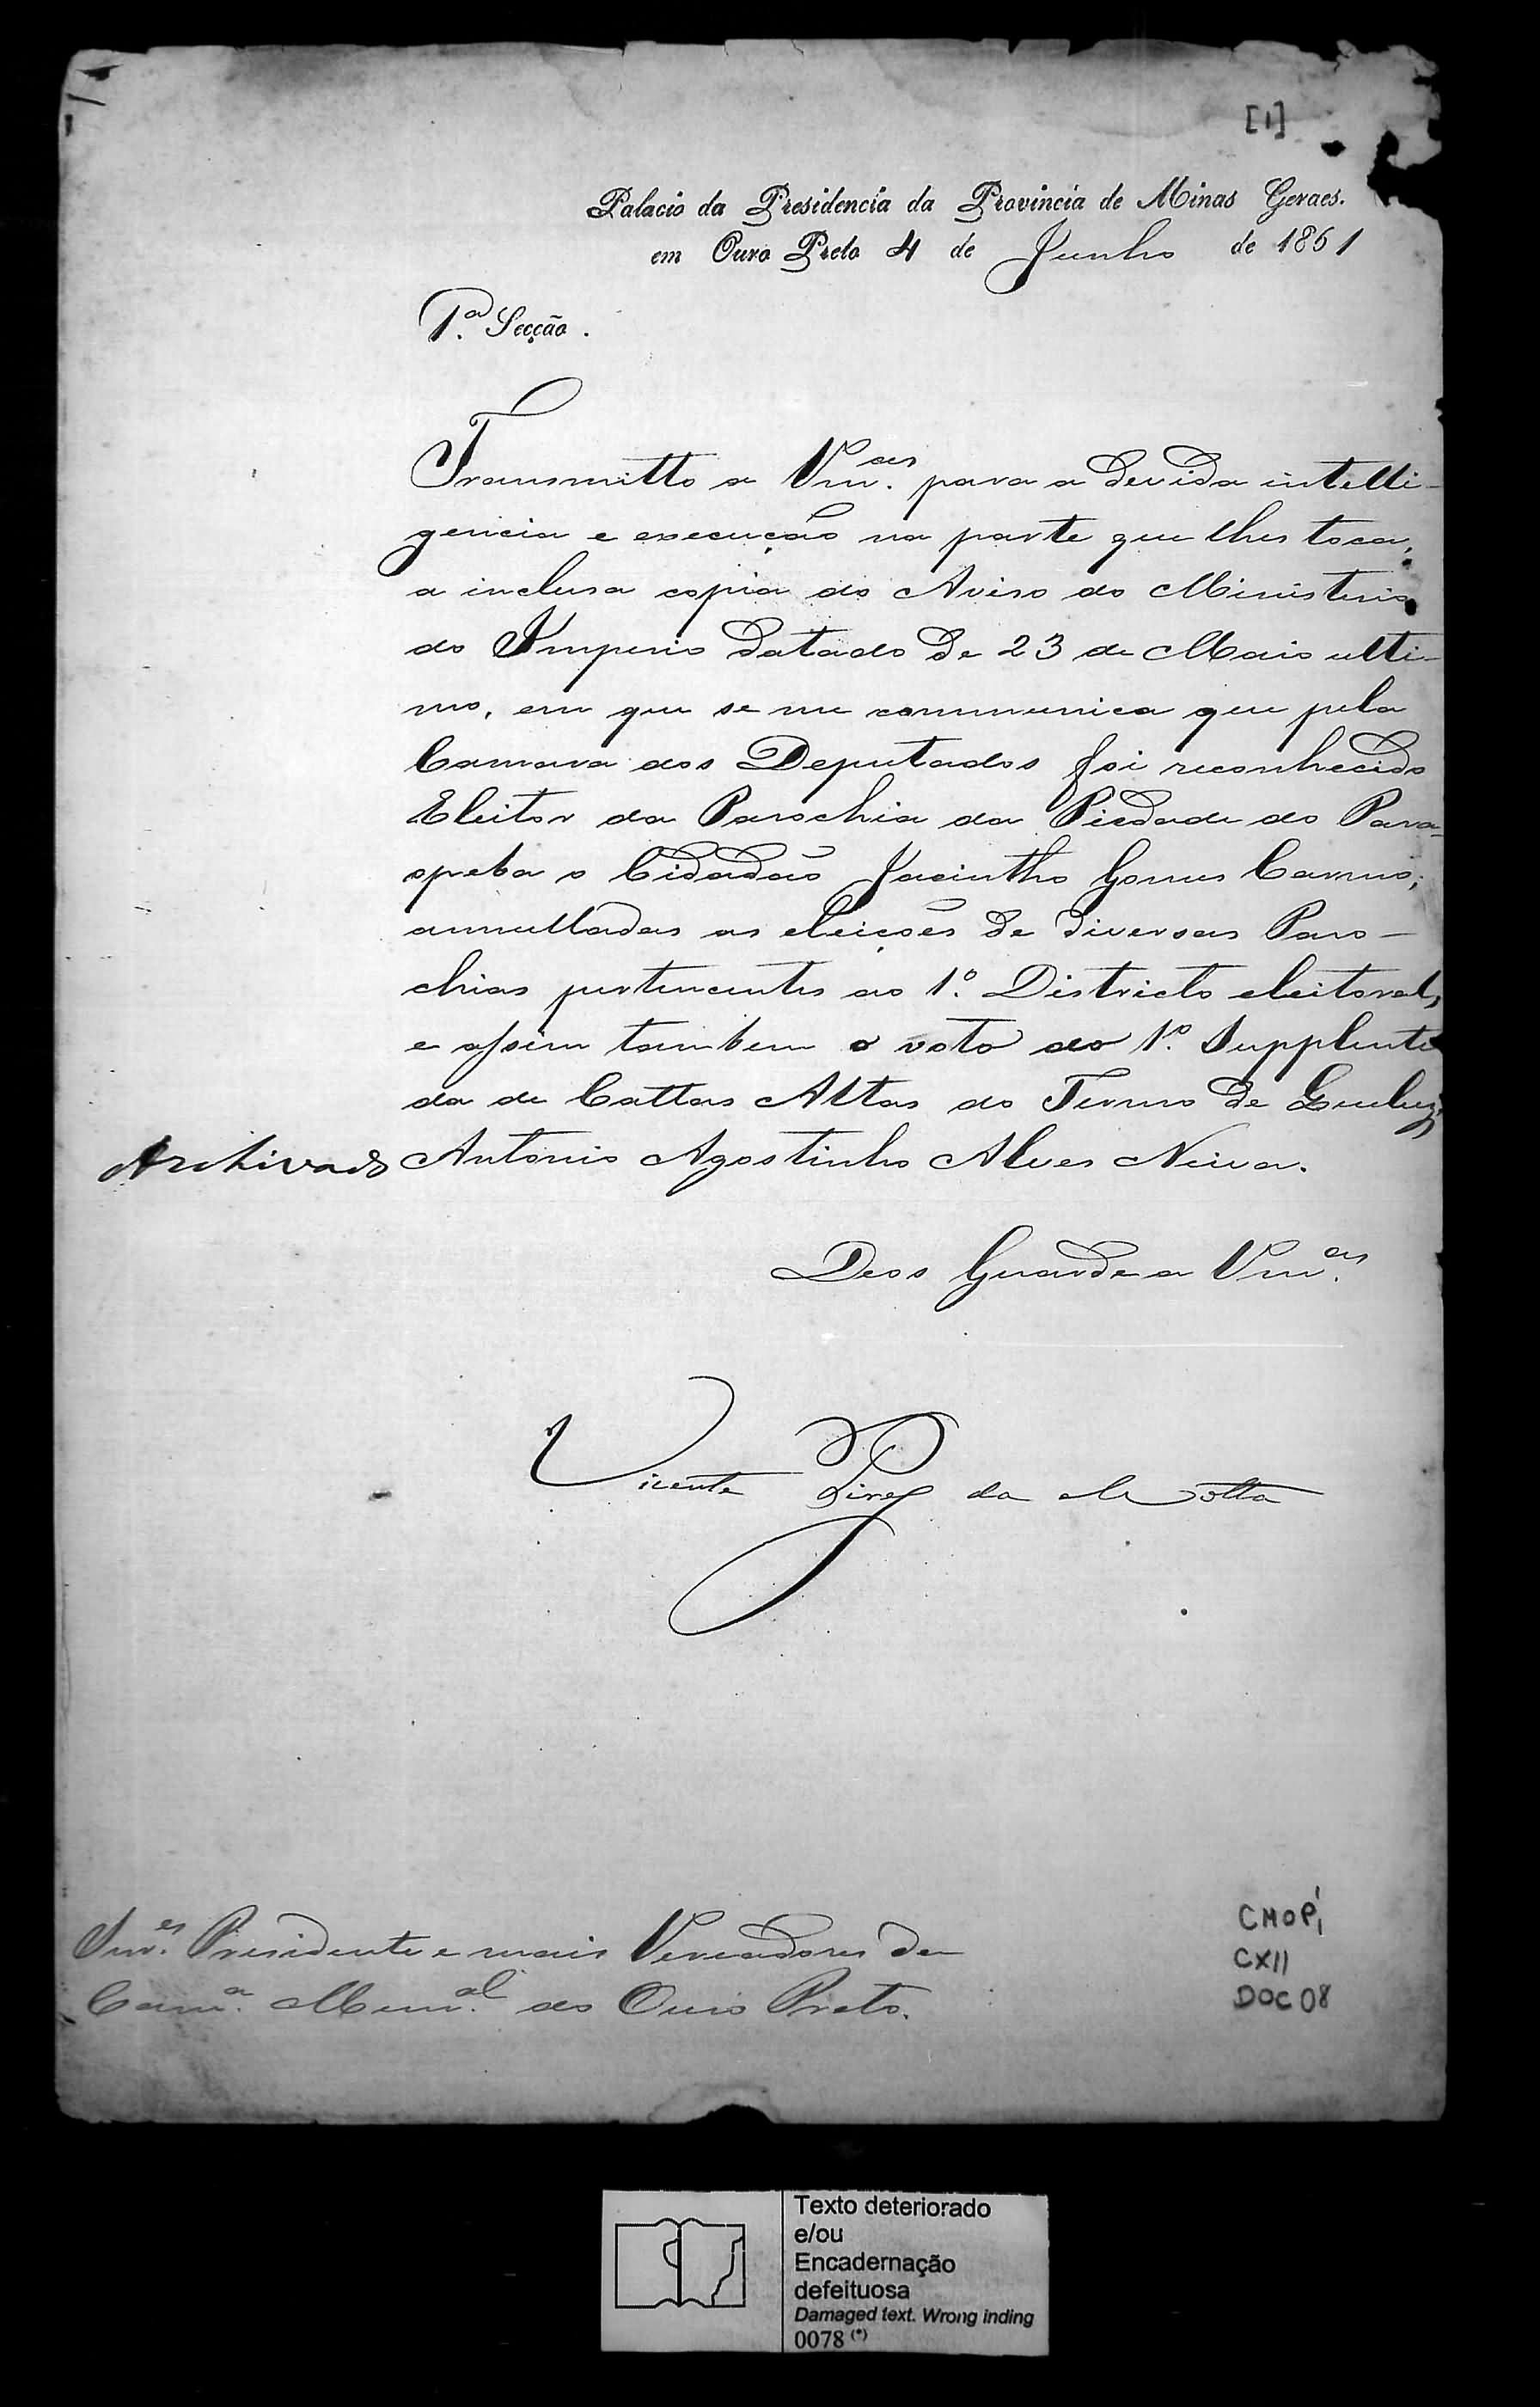 [1]
Palacio da Presidencia da Provincia de Minas Geraes.
em Ouro Preto 4 de Junho de 1861
1.ª Secção.
Transmitto a Vm.ces para a devida intelli-
gencia e execução na parte que lhes toca,
a inclusa copia do Aviso do Ministerio
do Imperio datado de 23 de Maio ulti-
mo, em que se me communica que pela
Camara dos Deputados foi reconhecido
Eleitor da Parochia da Piedade do Para-
opeba o Cidadão Jacintho Gomes Carmo;
annulladas as eleições de diversas Paro-
chias pertencentes ao 1.º Districto eleitoral,
e assim tambem o voto do 1.º Supplente
da de Cattas Altas do Termo de Queluz,
Archivado Antonio Agostinho Alves Neiva.
Deos Guarde a Vm.ces
Vicente Pires da Motta
Snr.es Presidente e mais Vereadores da
Cam.ª Mun.al do Ouro Preto.
CMOP,
CXII
DOC 08
Texto deteriorado
e/ou
Encadernação
defeituosa
Damaged text. Wrong inding
0078 (*)